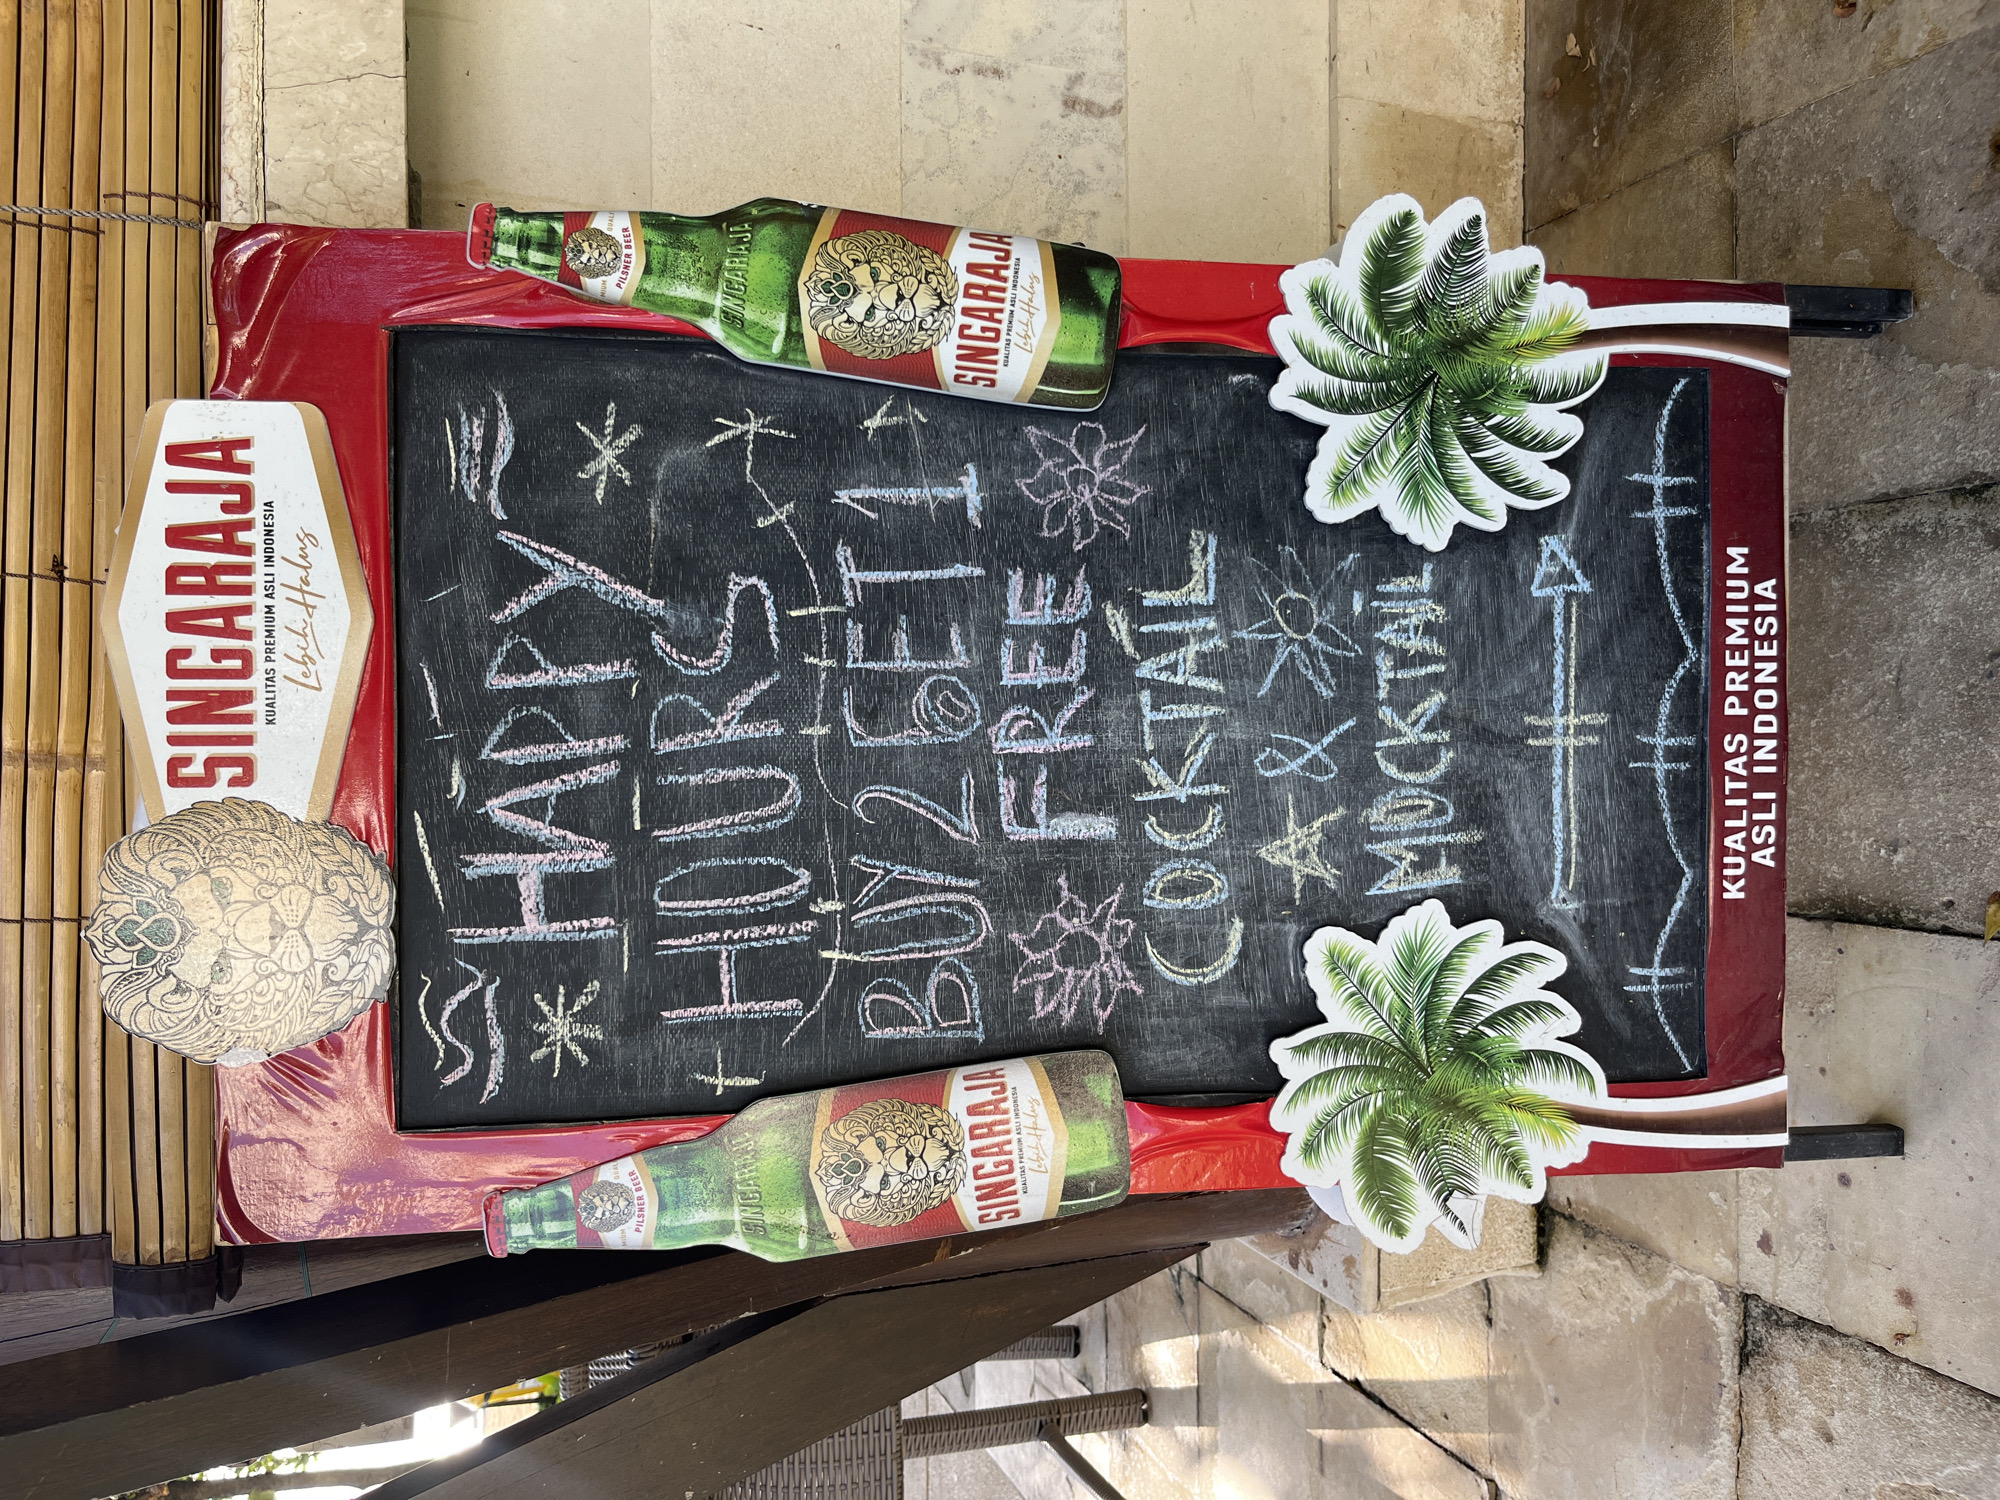 SINGARAJA
KUALITAS PREMIUM ASLI INDONESIA
Lebih Halus
HAPPY
HOURS
BUY 2 GET 1
FREE
COCKTAIL
&
MOCKTAIL
PILSNER BEER
SINGARAJA
SINGARAJA
KUALITAS PREMIUM ASLI INDONESIA
Lebih Halus
PILSNER BEER
SINGARAJA
SINGARAJA
KUALITAS PREMIUM ASLI INDONESIA
Lebih Halus
KUALITAS PREMIUM
ASLI INDONESIA